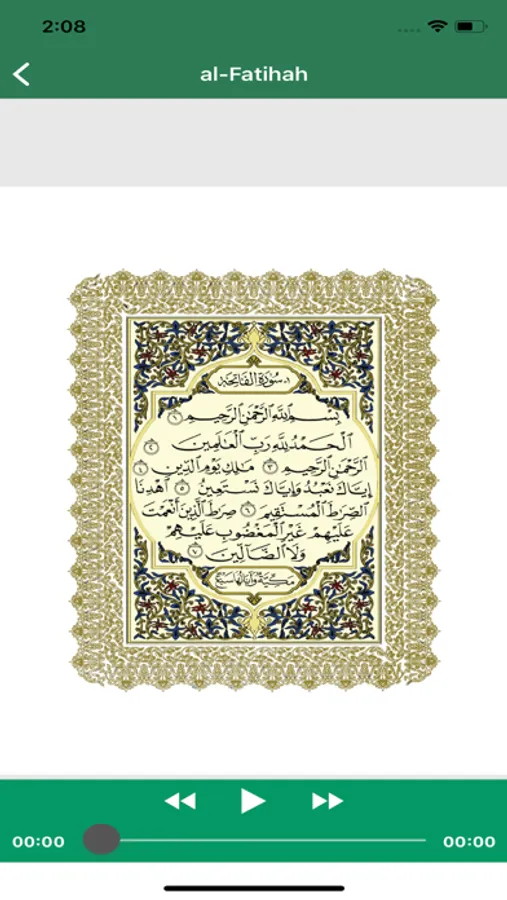 2:08
al-Fatihah
١- سُورَةُ الفَاتِحَةِ
بِسْمِ ٱللَّهِ ٱلرَّحْمَٰنِ ٱلرَّحِيمِ ١
ٱلْحَمْدُ لِلَّهِ رَبِّ ٱلْعَٰلَمِينَ ٢
ٱلرَّحْمَٰنِ ٱلرَّحِيمِ ٣ مَٰلِكِ يَوْمِ ٱلدِّينِ ٤
إِيَّاكَ نَعْبُدُ وَإِيَّاكَ نَسْتَعِينُ ٥ ٱهْدِنَا
ٱلصِّرَٰطَ ٱلْمُسْتَقِيمَ ٦ صِرَٰطَ ٱلَّذِينَ أَنْعَمْتَ
عَلَيْهِمْ غَيْرِ ٱلْمَغْضُوبِ عَلَيْهِمْ
وَلَا ٱلضَّآلِّينَ ٧
مَكِّيَّةٌ وَآيَاتُهَا سَبْعٌ
00:00
00:00